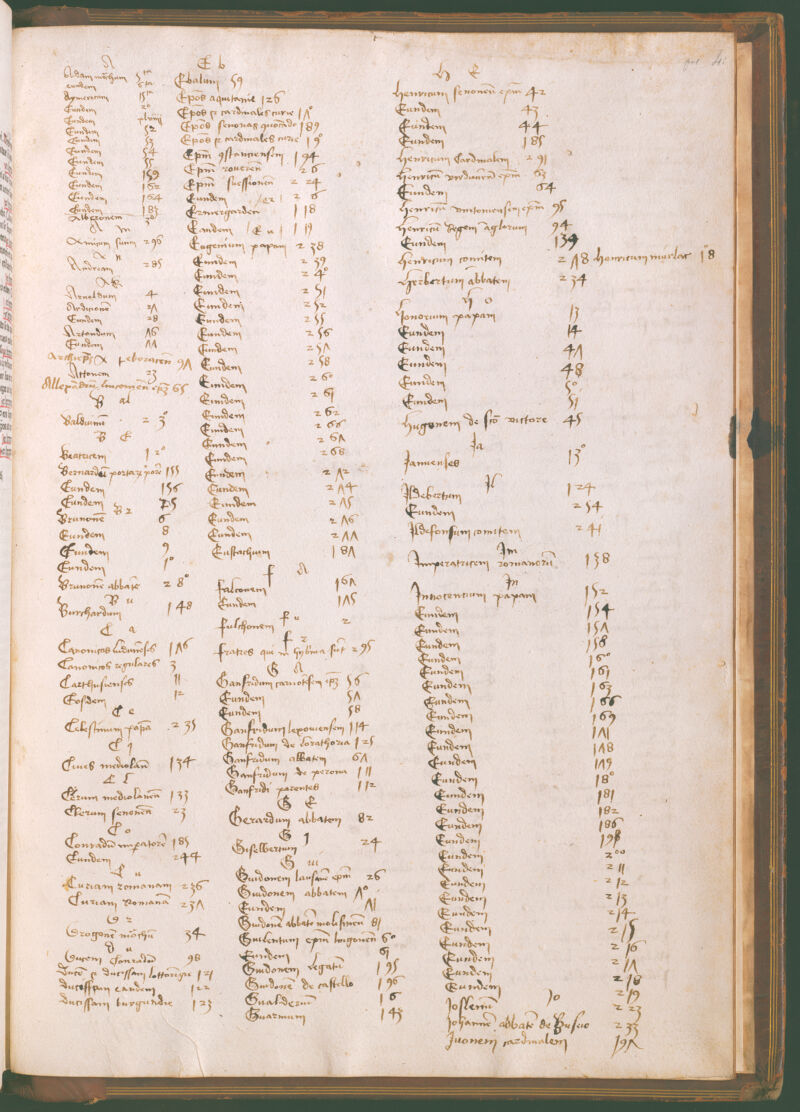 A
Adam mo͞chum 5ta
eundem 6ta
Aymericum 15ta
Eundem 20
Eundem
Eundem 52
Eundem 53
Eundem 54
Eundem 55
Eundem 159
Eundem 162
Eundem 164
Eundem 183
30
A m
Amicum suum 296
A n
Andream 285
A R
Arnoldum 4
Ardicionē 27
Eundem 28
Artondum 76
Eundem 77
Archiep̄m eboracen̄ 97
Attonem 23
Allexandrū lincolnien̄ ep̄m 65
B al
Balduinū 230
B E
Beatricem 120
Bernardū portarꝝ porē 155
Eundem 156
Eundem
B r
Brunonē 6
Eundem 8
Eundem 9
Eundem 10
Brunonē abbatē 280
B u
Burchardum 148
C a
Canonicos lūdunēses 176
Canonicos regulares 3
Carthusienses 11
Eosdem 12
C e
Celestinum papā 235
C i
Ciues mediolan̄ 134
C l
Clerum mediolanēn 133
Clerum senonen̄ 23
C o
Conradū imꝑatorē 185
Eundem 244
C u
Curiam romanam 236
Curiam Romanā 237
D r
Drogonē mōchū 34
D u
Ducem Conradū 98
Ducē ⁊ ducissam lottoringie 121
ducissam eandem 122
ducissam burgundie 123
E b
Ebalum 59
Ep̄os aquitanie 126
Ep̄os ⁊ cardinales curie 170
Ep̄os senonas quocādo 189
Ep̄os ⁊ cardinales curie 190
Ep̄m ꝯstanciensem 194
Ep̄m 26
Ep̄m suessionen̄ 224
Eundem er 26
Ermergarden 118
Eandem E u 119
Eugenium papam 238
Eundem 239
Eundem 240
Eundem 251
Eundem 252
Eundem 255
Eundem 256
Eundem 257
Eundem 258
Eundem 260
Eundem 261
Eundem 262
Eundem 266
Eundem 267
Eundem 268
Eundem 272
Eundem 274
Eundem 275
Eundem 276
Eundem 277
Eustachium 187
F A
Falconem 167
Eundem 175
F u
Fulchonem 2
F r
Fratres qui in hybnia sūt 295
G A
Gaufridum carnotēsem ep̄m 56
Eundem 57
Eundem 58
Gaufridum lexouiensem 114
Gaufridum de lorathoria 125
Gaufridum abbatem 67
Gaufridum de perona 111
Gaufridi parentes 112
G E
Gerardum abbatem 82
G I
Gislebertum 24
G ui
Guidonem lausanē ep̄m 26
Guidonem abbatem 70
Eundem 71
Guidonē abbatē molismen̄ 81
Guilentum ep̄m lingonen̄ 60
Eundem 61
Guidonem legatū 195
Guidonē de castello 196
Gualderum 16
Guarinum 143
H E
Henricum senonen̄ ep̄m 42
Eundem 43
Eundem 44
Eundem 185
Henricum Cardinalem 291
Henricū uirdunen̄ ep̄m 63
Eundem 64
Henricū uintoniensem ep̄m 95
Henricū Regem āglorum 94
Eundem 139
Henricum comitem 278 Henricum murdac 108
Herbertum abbatem 234
H o
Honorium papam 13
Eundem 14
Eundem 47
Eundem 48
Eundem 50
Eundem 51
Hugonem de sco̅ uittore 45
Ja
Januenses 130
Jl
Ildebertum 124
Eundem 254
Ildefonsum comitem 241
Im
Imperatricem romanorū 138
In
Innocentium papam 152
Eundem 154
Eundem 157
Eundem 158
Eundem 160
Eundem 161
Eundem 163
Eundem 166
Eundem 169
Eundem 171
Eundem 178
Eundem 179
Eundem 180
Eundem 181
Eundem 182
Eundem 186
Eundem 198
Eundem 200
Eundem 211
Eundem 212
Eundem 213
Eundem 214
Eundem 215
Eundem 216
Eundem 217
Eundem 218
Jo 219
Joslenū 223
Johannē abbatē de Busuo 233
Juonem cardinalem 197